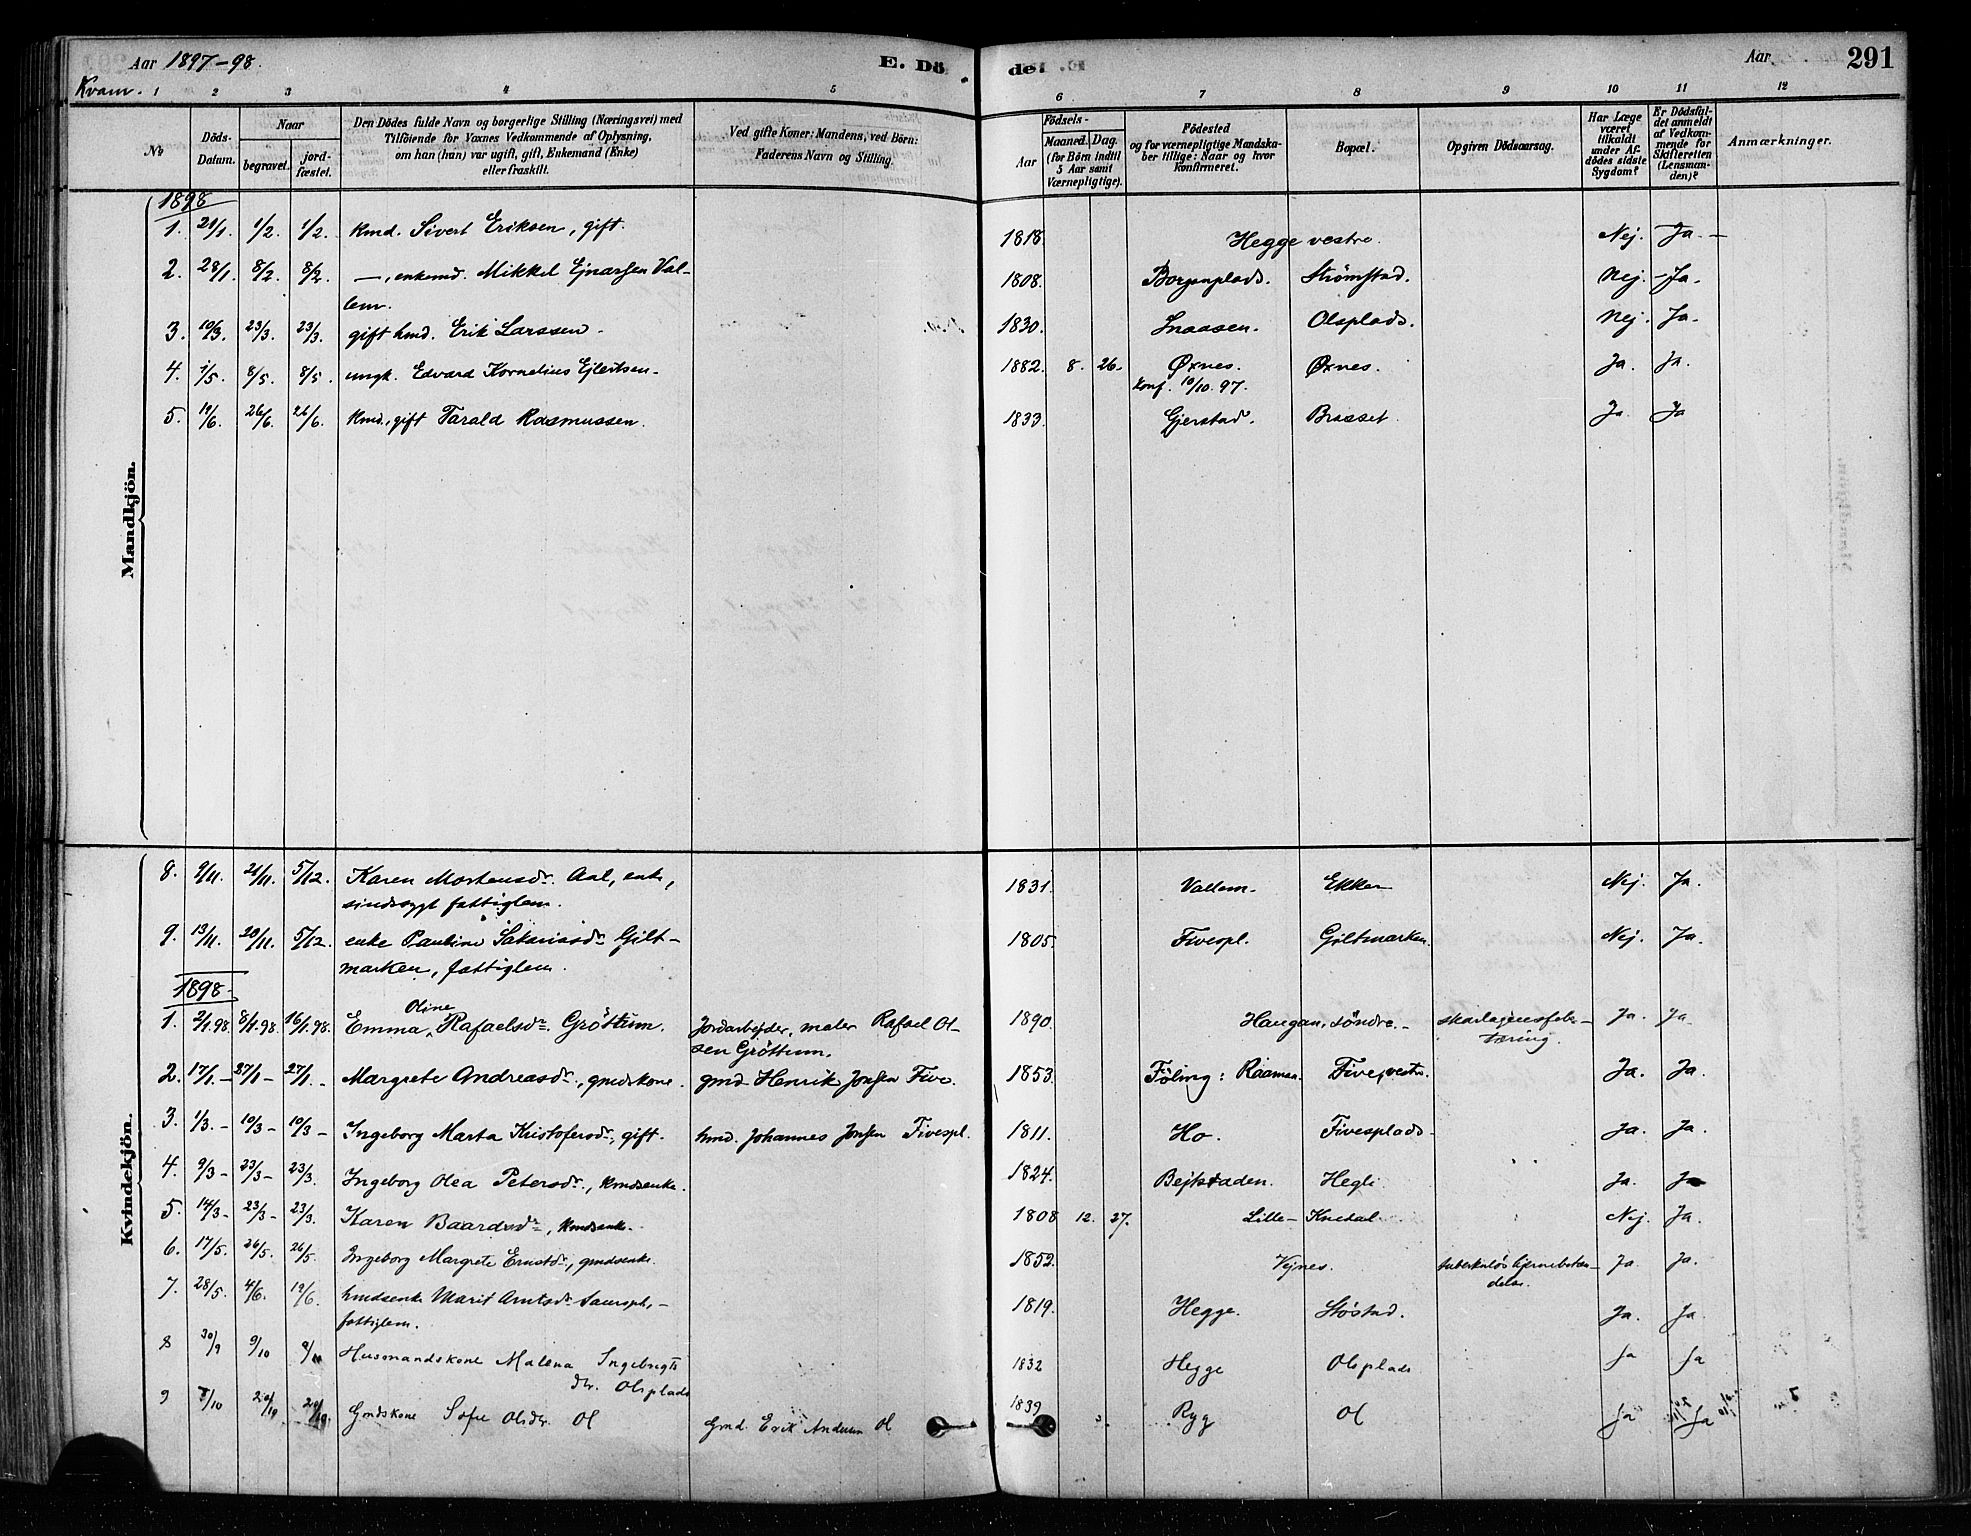 Aar 1897-98. E. Döde. Aar 291
Kvam. 1 2 3 4 5 6 7 8 9 10 11 12
No
Döds-Datum.
Naar
begravet.
jord-fæstet.
Den Dödes fulde Navn og borgerlige Stilling (Næringsvei) med
Tilföiende for Voxnes Vedkommende af Oplysning,
om han (hun) var ugift, gift, Enkemand (Enke)
eller fraskilt.
Ved gifte Koner: Mandens, ved Börn:
Faderens Navn og Stilling.
Födsels-
Aar
Maaned. Dag.
(for Börn indtil
5 Aar samt
Værnepligtige).
Födested
og for værnepligtige Mandska-
ber tillige: Naar og hvor
konfirmeret.
Bopæl.
Opgiven Dödsaarsag.
Har Læge
været
tilkaldt
under Af-
dödes sidste
Sygdom?
Er Dödsfal-
det anmeldt
af Vedkom-
mende for
Skifteretten
(Lensman-
den)?
Anmærkninger.
Mandkjön.
1898
1. 21/1. 1/2. 1/2. kmd. Sivert Eriksen, gift. 1818. Hegge vestre. Nej. Ja. —
2. 28/1. 8/2. 8/2. —, enkemd. Mikkel Ejnarsen Val- 1808. Borgenplads. Strömstad. Nej. - Ja.
lem.
3. 10/3. 23/3. 23/3. gift hmd. Erik Larssen. 1830. Snaasen. Olsplads. Nej. Ja.
4. 1/5. 8/5. 8/5. ungk. Edvard Kornelius Ejlertsen. 1882. 8. 26. Øxnes. Øxnes. Ja. Ja.
konf. 10/10. 97.
5. 19/6. 26/6. 26/6. Kmd., gift Tarald Rasmussen. 1833. Gjerstad. Brasset. Ja. Ja
Kvindekjön.
8. 9/11. 21/11. 5/12. Karen Mortensdr. Aal, enke, 1831. Vallem. Ekker Nej. Ja.
sindssygt fattiglem.
9. 13/11. 20/11. 5/12. enke Pauline Sakariasdr. Gilt- 1805. Fivespl. Giltmarken. Nej. Ja.
marken, fattiglem.
1898.
1. 2/1.98. 8/1.98. 16/1.98. Emma Oline Rafaelsdr. Gröttum. Jordarbejder, maler Rafael Ol- 1890. Haugan, söndre. skarlagensfeber- Ja. Ja.
sen Gröttum. tæring.
2. 17/1. - 27/1 - 27/1. - Margrete Andreasdr., gmdskone. gmd. Henrik Jonsen Five. 1853. Föling: Raaman. Five, vestr. Ja. Ja.
3. 1/3. - 10/3 - 10/3 - Ingeborg Marta Kristofersdr., gift. hmd. Johannes Jonsen Fivespl. 1811. Ho. Fivesplads. Ja. Ja.
4. 9/3 - 23/3 - 23/3. Ingeborg Olea Petersdr., kmdsenke. 1824. Bejtstaden. Hegli Ja. Ja
5. 14/3 - 23/3 - 23/3. Karen Baardsdr., kmdsenke. 1808 12. 27. Lille-Knedal. Nej. Ja.
6. 17/5. 26/5. 26/5. Ingeborg Margrete Ernstdr., gmdsenke. 1852. Vejnes. tuberkulös hjernebetæn- Ja. Ja.
delse.
7. 28/5. 4/6. 19/6. hmdsenke Marit Arntsdr. Saurspl., - 1819. Hegge. Støstad. Ja. Ja.
fattiglem.
8 30/9 9/10 Husmandskone Malena Ingebrigts 1832 Hegge Olsplads Ja Ja
dtr. Olsplads
9 8/10 20/10 20/10 Gmdskone Sofie Olsdtr. Ol Gmd. Erik Andersen Ol 1839 Ryg Ol Ja Ja